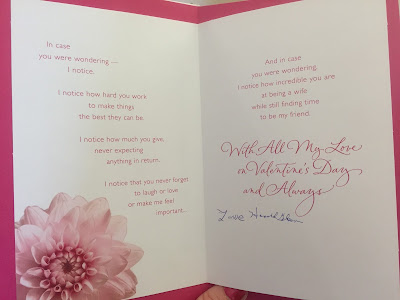 In case
you were wondering —
I notice.
I notice how hard you work
to make things
the best they can be.
I notice how much you give,
never expecting
anything in return.
I notice that you never forget
to laugh or love
or make me feel
important...
And in case
you were wondering,
I notice how incredible you are
at being a wife
while still finding time
to be my friend.
With All My Love
on Valentine's Day
and Always
Love